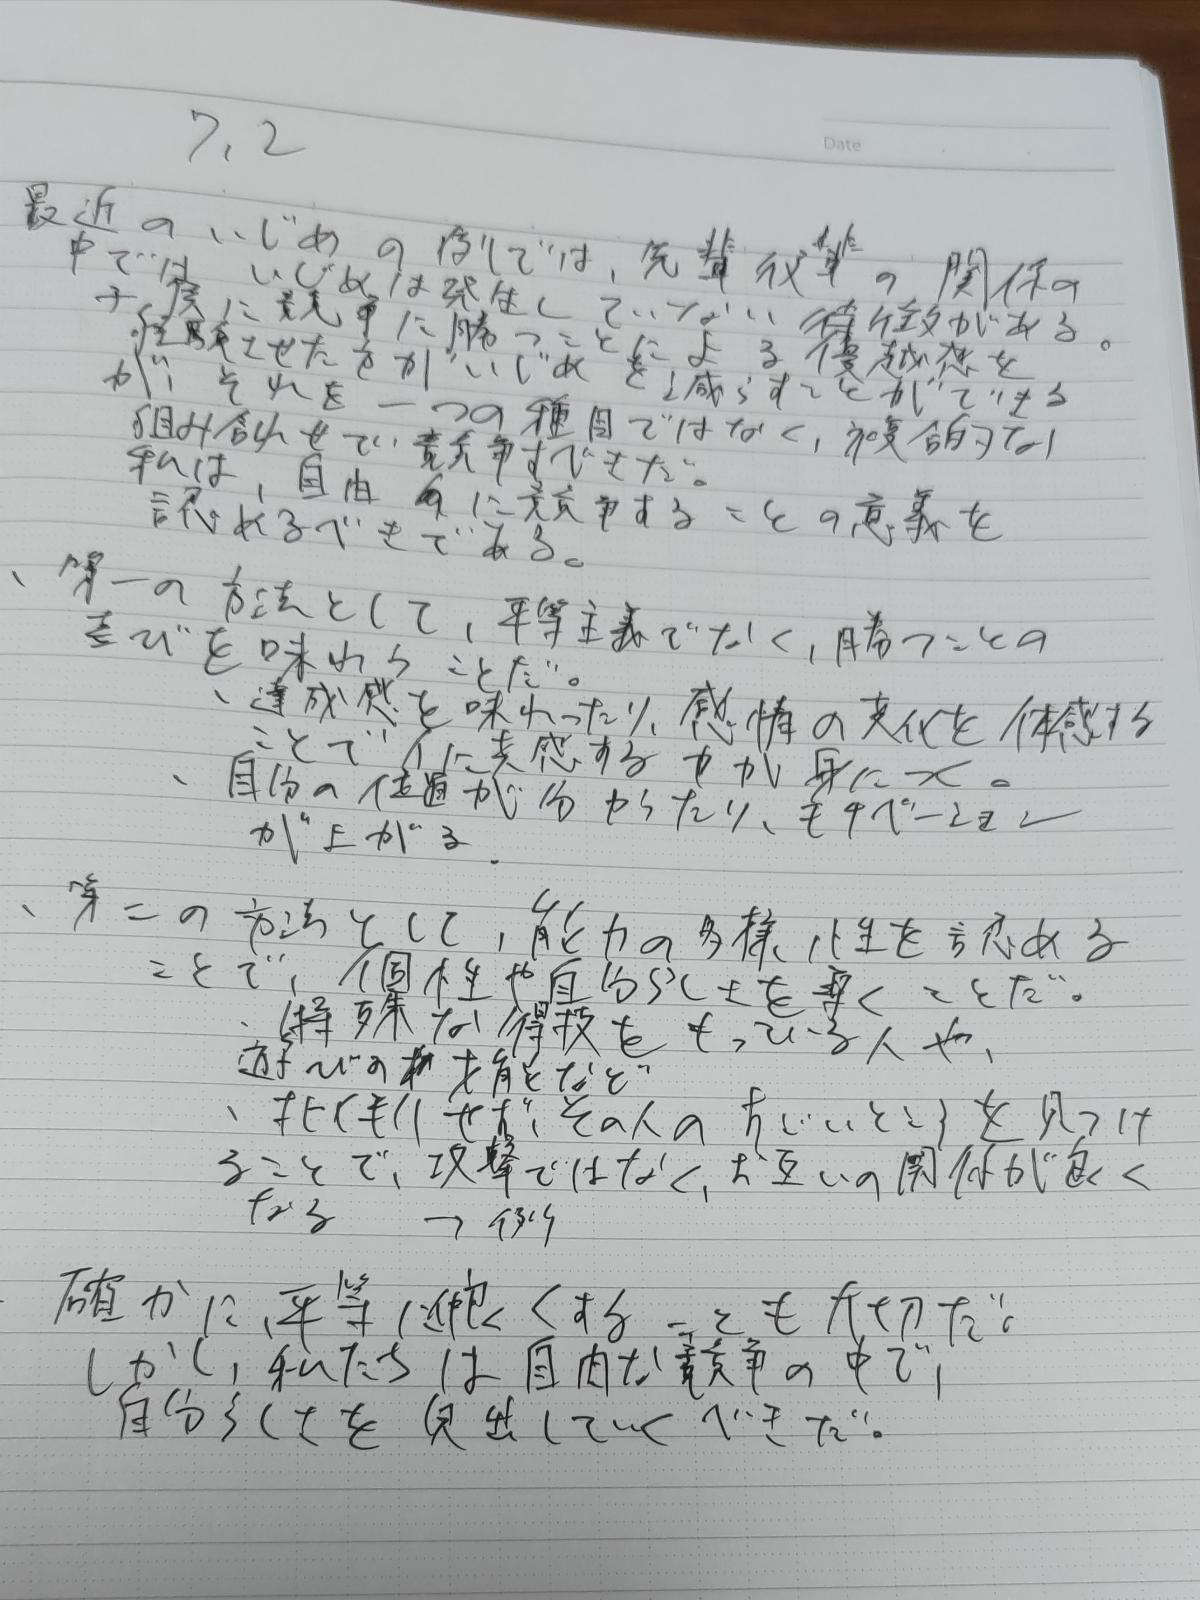 7.2
Date
最近のいじめの例では、先輩後輩の関係の
中では いじめは発生していない特徴がある。
子供に競争に勝つことによる優越感を
経験させた方がいじめを減らすことができる
が、それを一つの種目ではなく、複合的な
組み合わせで、競争すべきだ。
私は、自由に競争することの意義を
認めるべきである。
、第一の方法として、平等主義でなく、勝つことの
喜びを味わうことだ。
、達成感を味わったり、感情の変化を体感する
ことで人に共感する力が身につく。
、自分の位置が分かったり、モチベーション
が上がる。
、第二の方法として、能力の多様性を認める
ことで、個性や自分らしさを磨くことだ。
、特殊な得技をもっている人や、
遊びの才能など
、その人の よいところを見つけ
ることで、攻撃ではなく、お互いの関係が良く
なる → 例
確かに、平等に くすることも大切だ。
しかし、私たちは自由な競争の中で、
自分らしさを見出していくべきだ。